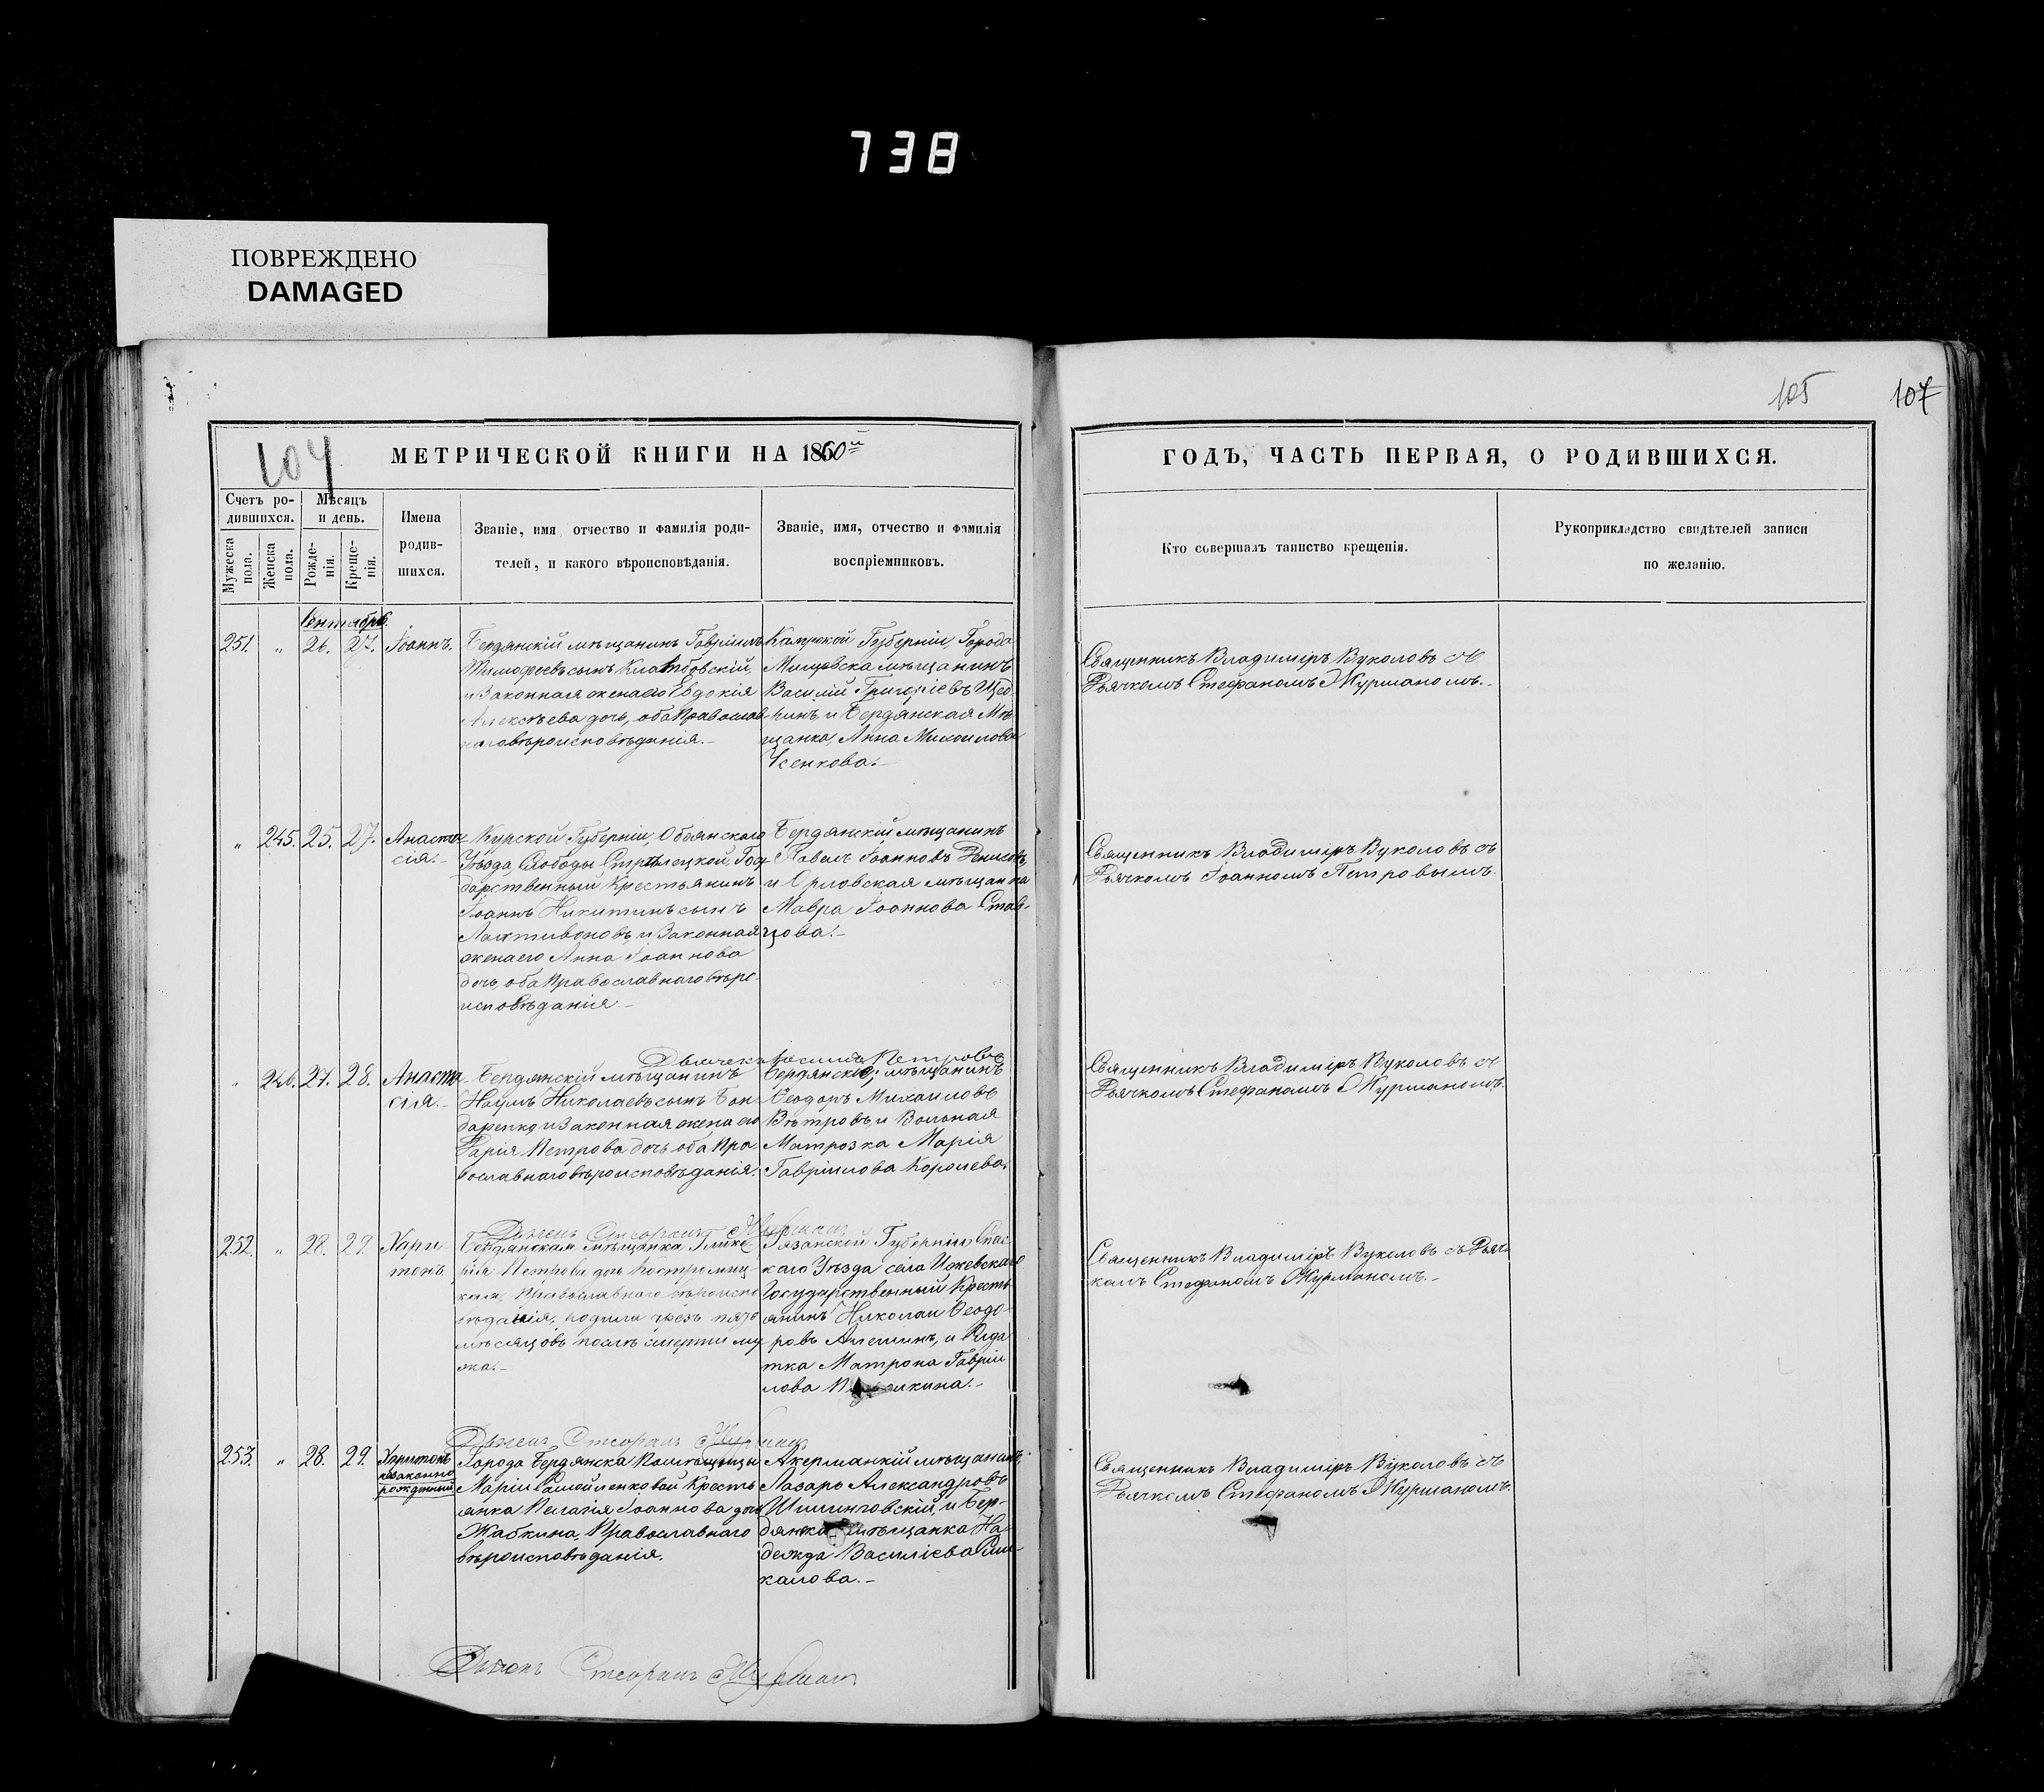 738
ПОВРЕЖДЕНО
DAMAGED
105
107
104
МЕТРИЧЕСКОЙ КНИГИ НА 1860й
ГОДЪ, ЧАСТЬ ПЕРВАЯ, О РОДИВШИХСЯ.
Счетъ ро-
дившихся.
Мѣсяцъ
и день.
Мужеска
пола.
Женска
пола.
Рожде-
нія.
Креще-
нія.
Имена
родив-
шихся.
Званіе, имя отчество и фамилія роди-
телей, и какого вѣроисповѣданія.
Званіе, имя, отчество и фамилія
воспріемниковъ.
Кто совершалъ таинство крещенія.
Рукоприкладство свидѣтелей записи
по желанію.
Сентябрь.
251. " 26. 27. Іоаннъ.
Бердянскій мѣщанинъ Гавріилъ
Тимофеевъ сынъ
и Законная жена его Евдокія
Алексѣева дочь, оба Православ
наго вѣроисповѣданія.-
Калужской Губерніи, Города
Мещовска мѣщанинъ
Василій Григоріевъ Щед
ринъ и Бердянская Мѣ
щанка, Анна Михаилова
Усенкова.-
Священникъ Владиміръ Вуколовъ съ
Дьячкомъ Стефаномъ Журманомъ.-
" 245. 25. 27. Анаста
сія.-
Курской Губерніи, Обоянскаго
Уѣзда, Слободы Стрѣлецкой, Госу
дарственный Крестьянинъ
Іоаннъ Никитинъ сынъ
Лактивоновъ, и Законная
жена его Анна Іоаннова
дочь, оба Православнаго вѣро
исповѣданія.-
Бердянскій мѣщанинъ
Павелъ Іоанновъ Денисовъ,
и Орловская мѣщанка
Мавра Іоаннова Став-
цова.-
Священникъ Владиміръ Вуколовъ съ
Дьячкомъ Іоанномъ Петровымъ.
Петровъ
" 246. 27. 28. Анаста
сія.-
Бердянскій мѣщанинъ
Наумъ Николаевъ сынъ Бон
даренко, и Законная жена его
Дарія Петрова дочь оба Пра
вославнаго вѣроисповѣданія.
Бердянскій мѣщанинъ
Ѳеодоръ Михаиловъ
Вѣтровъ, и Вольная
Матрозка Марія
Гавріилова Королева.
Священникъ Владиміръ Вуколовъ съ
Дьячкомъ Стефаномъ Журманомъ.
Дьячекъ Стефанъ Журманъ
252. " 28. 29. Хари
тонъ.
Бердянская мѣщанка Глике
рія Петрова дочь
Православнаго вѣроиспо
вѣданія, родила чрезъ пять
мѣсяцовъ послѣ смерти му
жа.-
Рязанской Губерніи, Спас
каго Уѣзда села Ижевскаго
Государственный Кресть
янинъ Николай Ѳеодо
ровъ Алешинъ, и
Матрона Гавріи
лова
Священникъ Владиміръ Вуколовъ съ Дьяч
комъ Стефаномъ Журманомъ.-
Дьячекъ Стефанъ Журманъ
253. " 28. 29. Харитонъ
незаконно
рожденный
Города Бердянска Помѣщицы
Маріи Самойленковой Кресть
янка Пелагія Іоаннова дочь
Жабкина, Православнаго
вѣроисповѣданія.
Акерманкій мѣщанинъ,
Лазарь Александровъ
и Бер-
дянка мѣщанка На
дежда Василіева
калова.-
Священникъ Владиміръ Вуколовъ съ
Дьячкомъ Стефаномъ Журманомъ.
Дьячекъ Стефанъ Журманъ